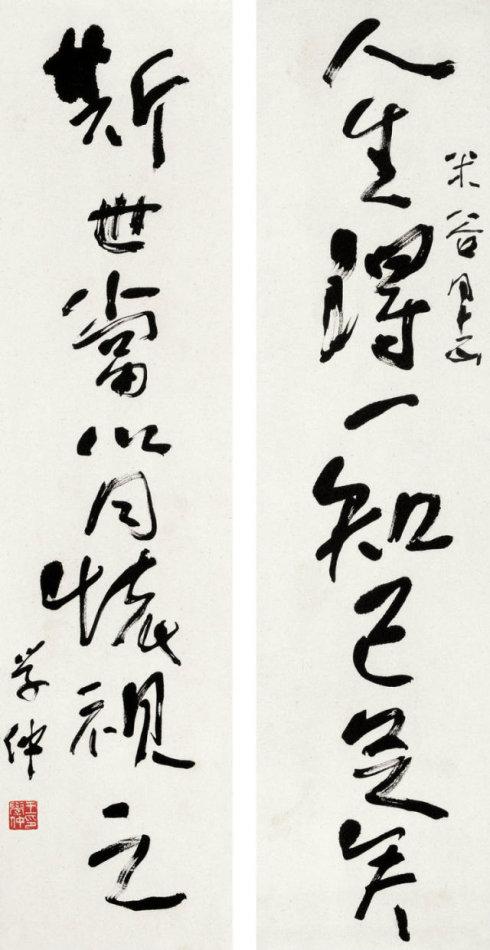 米谷同志正
人生得一知己足矣
斯世當以同懷視之
学仲